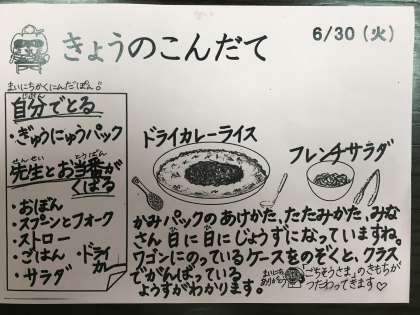 きょうのこんだて
6/30（火）
まいにちかくにんだぽん♪
じぶん
自分でとる
・ぎゅうにゅうパック
せんせい とうばん
先生とお当番が
くばる
・おぼん
・スプーンとフォーク
・ストロー
・ごはん
・ドライカレー
・サラダ
ドライカレーライス
フレンチサラダ
かみパックのあけかた、たたみかた、みな
さん日に日にじょうずになっていますね。
ワゴンにのっているケースをのぞくと、クラス
でがんばっている
ようすがわかります。
まいにちありがとう
「ごちそうさま」のきもちが
つたわってきます♡